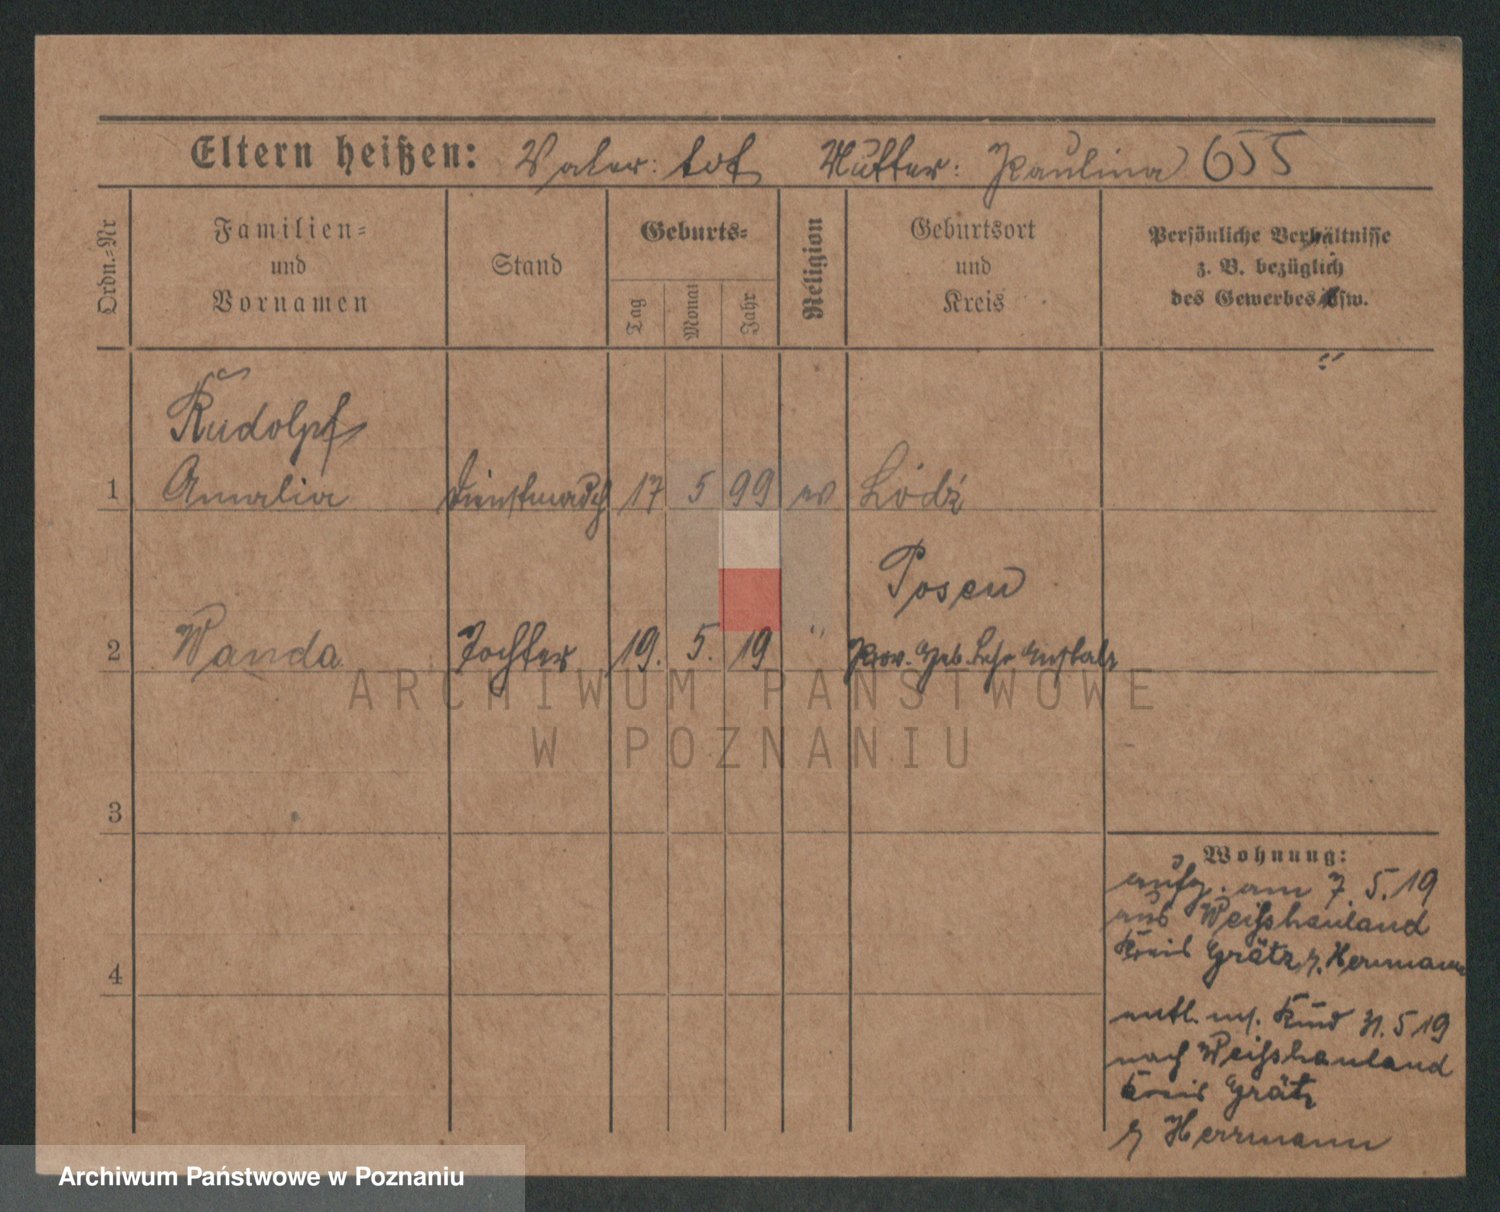 Eltern heißen: Vater: tot Mutter: Paulina 655
Ordn.=Nr
Familien=
und
Vornamen
Stand
Geburts=
Tag
Monat
Jahr
Religion
Geburtsort
und
Kreis
Persönliche Verhältnisse
z. B. bezüglich
des Gewerbes usw.
Rudolpf
1 Amalia Dienstmädch 17 5 99 ev Łódź
Posen
2 Wanda Tochter 19. 5. 19 " Prov. Heb. Lehr Anstalt
3
4
Wohnung:
aufg. am 7. 5. 19
aus Weißhauland
Kreis Grätz z. Herrmann
entl. m. Kind 31. 5 19
nach Weißhauland
Kreis Grätz
z Herrmann
ARCHIWUM PAŃSTWOWE
W POZNANIU
Archiwum Państwowe w Poznaniu